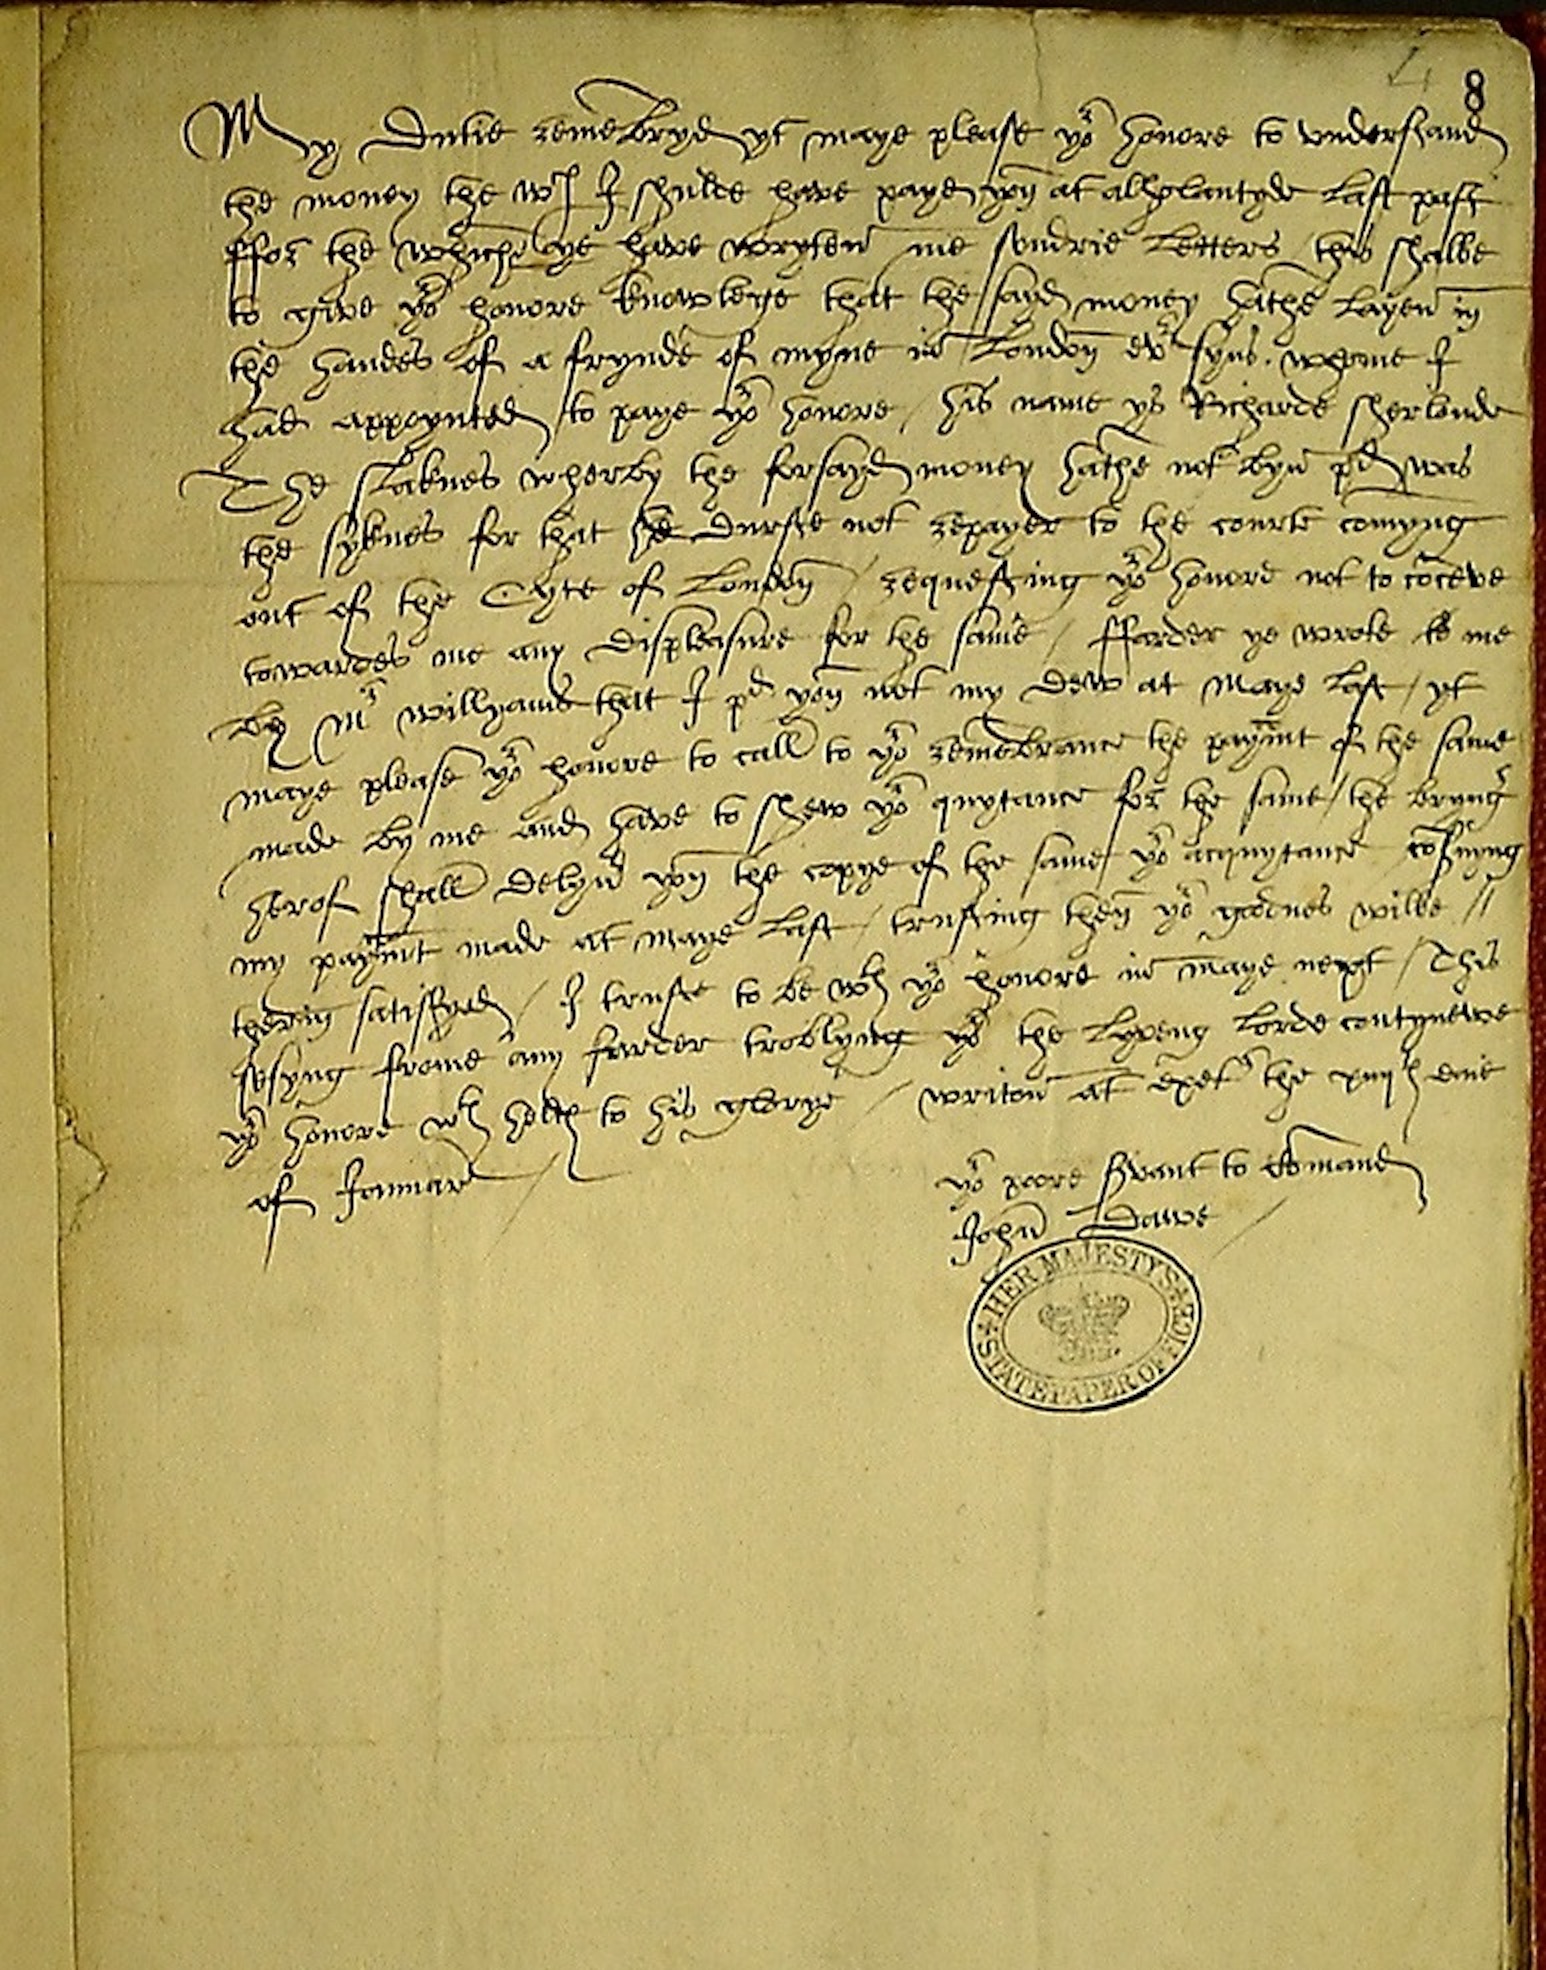 8
My Dutie remembryd yt maye please yor honore to understand
the money the wch I shulde have payed you at alholantyde last past
ffor the whiche ye have wryten me sondrie Letters this shalbe
to give yor honore knowlege that the sayd money hathe layen in
the handes of a frynde of myne in London evr syns. whome I
had appoynted to paye yor honore / his name ys Richarde
The slaknes wherby the forsayd money hathe not byn pd was
the syknes for that he durste not repayer to the courte comyng
out of the Cyte of London / requesting yor honore not to coceve
towardes me any displeasure for the same / ffarder ye wrote to me
by Mr willyams that I pd you not my dew at Maye last / yt
maye please yor honore to call to yor remembrance the paymt of the same
made by me and have to shew yor quytance for the same / the bryngr
herof shall delyvr you the copye of the same yor acquytance
my paymt made at maye last / trusting then yor goodnes wilbe //
therin satisfyed / I truste to be wth yor honore in maye next / This
sesyng frome any farder troblyng yor the lyveng Lorde contynewe
yor honore wth helth to his glorye / writon at Exetr the daie
of Januarie /
yor poore srvant to comand
John Dawe /
HER MAJESTY'S
STATE PAPER OFFICE